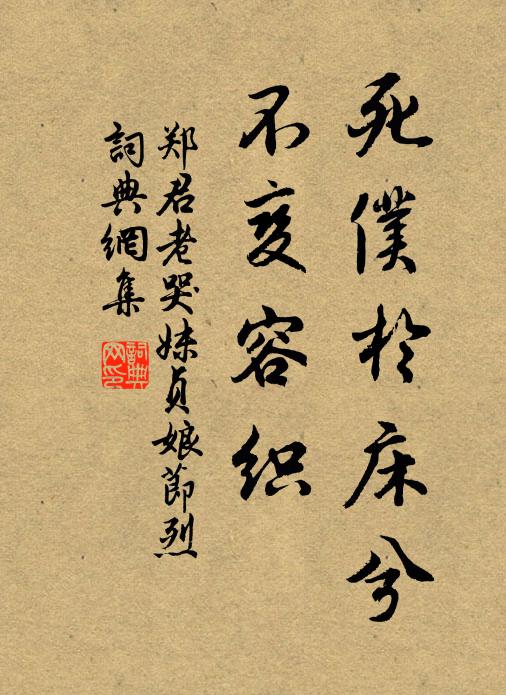 死僕於床兮
不变容织
郑君老哭妹贞娘節烈
詞典網集
詞典網印